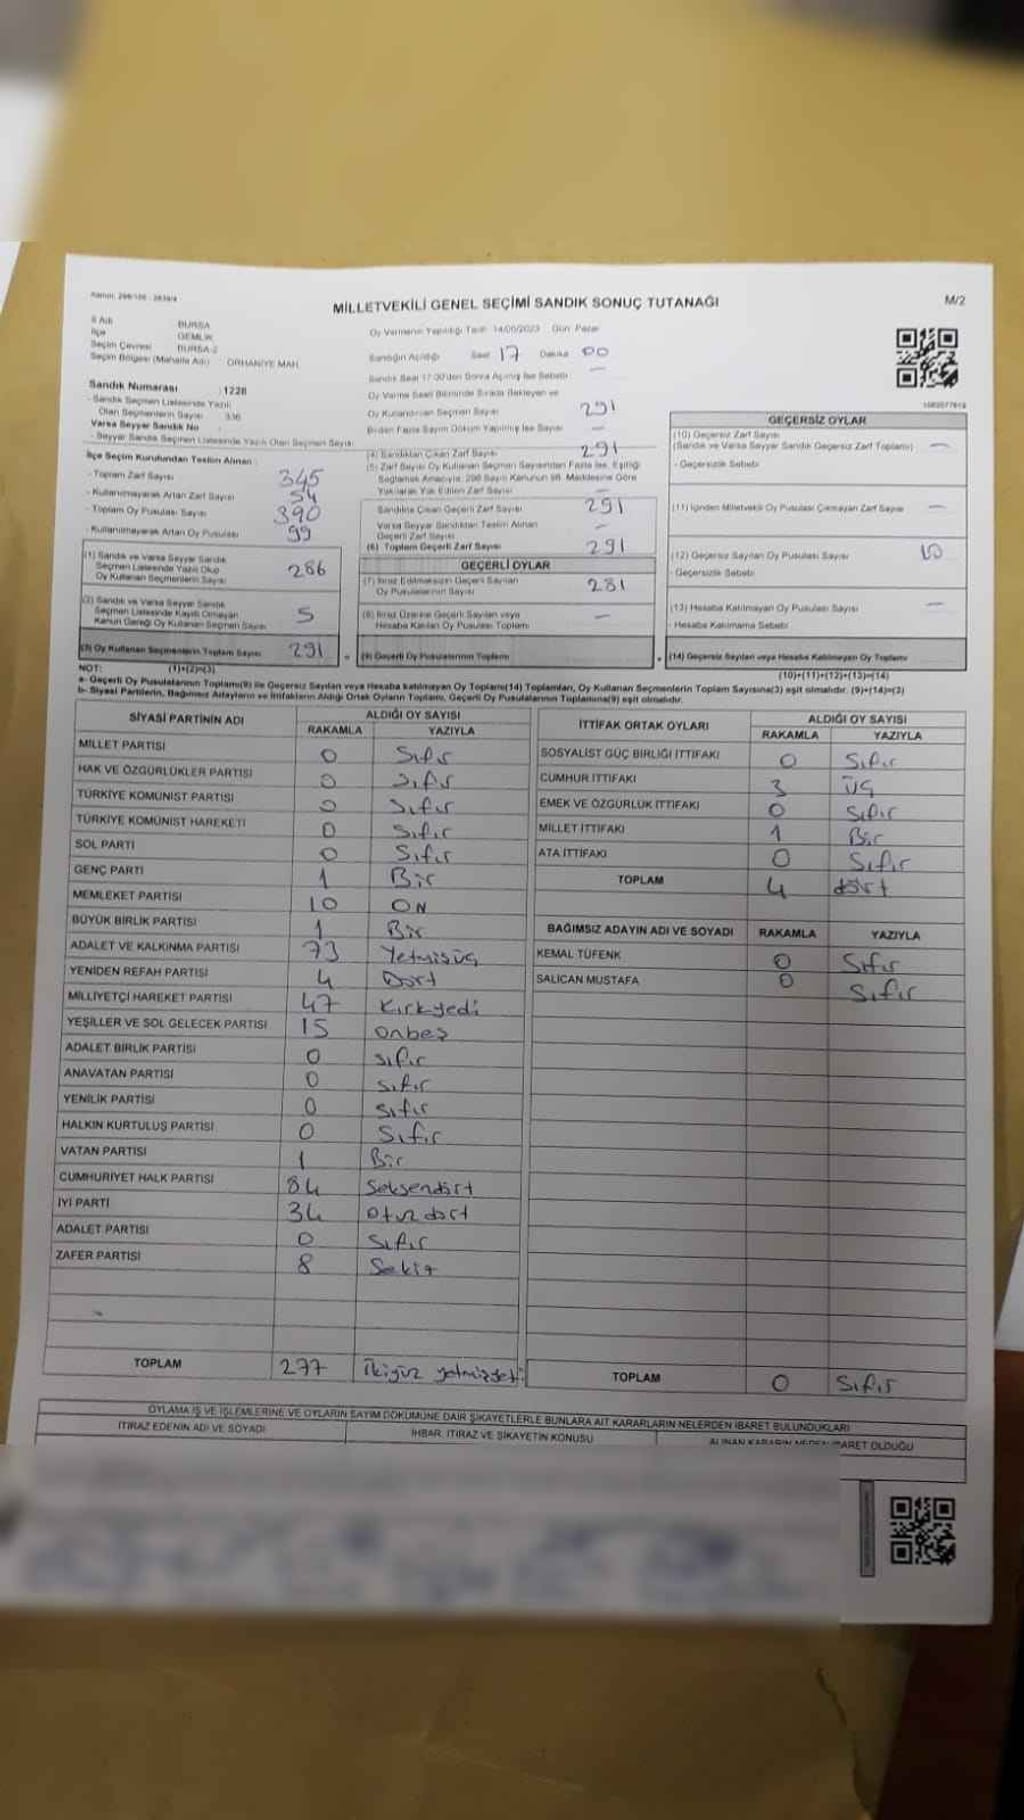 MİLLETVEKİLİ GENEL SEÇİMİ SANDIK SONUÇ TUTANAĞI
M/2
İl Adı BURSA
İlçe GEMLİK
Seçim Çevresi BURSA-2
Seçim Bölgesi (Mahalle Adı) ORHANİYE MAH.
Oy Vermenin Yapıldığı Tarih 14/05/2023 Gün: Pazar
Sandığın Açıldığı Saat 17 Dakika 00
Sandık Saat 17:00'den Sonra Açılmış İse Sebebi —
Sandık Numarası : 1228
- Sandık Seçmen Listesinde Yazılı
Olan Seçmenlerin Sayısı 336
Varsa Seyyar Sandık No
- Seyyar Sandık Seçmen Listesinde Yazılı Olan Seçmen Sayısı
Oy Kullandıran Seçmen Sayısı 291
Birden Fazla Sayım Döküm Yapılmış İse Sayısı —
İlçe Seçim Kurulundan Teslim Alınan :
- Toplam Zarf Sayısı 345
- Kullanılmayarak Artan Zarf Sayısı 54
- Toplam Oy Pusulası Sayısı 390
- Kullanılmayarak Artan Oy Pusulası 99
(1) Sandık ve Varsa Seyyar Sandık
Seçmen Listesinde Yazılı Olup
Oy Kullanan Seçmenlerin Sayısı 286
(2) Sandık ve Varsa Seyyar Sandık
Seçmen Listesinde Kayıtlı Olmayan
Kanun Gereği Oy Kullanan Seçmen Sayısı 5
(3) Oy Kullanan Seçmenlerin Toplam Sayısı 291
(1)+(2)=(3)
(4) Sandıktan Çıkan Zarf Sayısı 291
(5) Zarf Sayısı Oy Kullanan Seçmen Sayısından Fazla İse, Eşitliği
Sağlamak Amacıyla, 298 Sayılı Kanunun 98. Maddesine Göre
Yakılarak Yok Edilen Zarf Sayısı —
Sandıkta Çıkan Geçerli Zarf Sayısı 291
Varsa Seyyar Sandıktan Teslim Alınan
Geçerli Zarf Sayısı —
(6) Toplam Geçerli Zarf Sayısı 291
GEÇERLİ OYLAR
(7) İtiraz Edilmeksizin Geçerli Sayılan
Oy Pusulalarının Sayısı 281
(8) İtiraz Üzerine Geçerli Sayılan veya
Hesaba Katılan Oy Pusulası Toplamı —
(9) Geçerli Oy Pusulalarının Toplamı
GEÇERSİZ OYLAR
(10) Geçersiz Zarf Sayısı
(Sandık ve Varsa Seyyar Sandık Geçersiz Zarf Toplamı) —
- Geçersizlik Sebebi
(11) İçinden Milletvekili Oy Pusulası Çıkmayan Zarf Sayısı —
(12) Geçersiz Sayılan Oy Pusulası Sayısı 10
- Geçersizlik Sebebi
(13) Hesaba Katılmayan Oy Pusulası Sayısı —
- Hesaba Katılmama Sebebi
(14) Geçersiz Sayılan veya Hesaba Katılmayan Oy Toplamı
(10)+(11)+(12)+(13)=(14)
NOT:
a- Geçerli Oy Pusulalarının Toplamı(9) ile Geçersiz Sayılan veya Hesaba katılmayan Oy Toplamı(14) Toplamları, Oy Kullanan Seçmenlerin Toplam Sayısına(3) eşit olmalıdır. (9)+(14)=(3)
b- Siyasi Partilerin, Bağımsız Adayların ve İttifakların Aldığı Ortak Oyların Toplamı, Geçerli Oy Pusulalarının Toplamına(9) eşit olmalıdır.
SİYASİ PARTİNİN ADI ALDIĞI OY SAYISI
RAKAMLA YAZIYLA
MİLLET PARTİSİ 0 Sıfır
HAK VE ÖZGÜRLÜKLER PARTİSİ 0 Sıfır
TÜRKİYE KOMÜNİST PARTİSİ 0 Sıfır
TÜRKİYE KOMÜNİST HAREKETİ 0 Sıfır
SOL PARTİ 0 Sıfır
GENÇ PARTİ 1 Bir
MEMLEKET PARTİSİ 10 ON
BÜYÜK BİRLİK PARTİSİ 1 Bir
ADALET VE KALKINMA PARTİSİ 73 Yetmişüç
YENİDEN REFAH PARTİSİ 4 Dört
MİLLİYETÇİ HAREKET PARTİSİ 47 Kırkyedi
YEŞİLLER VE SOL GELECEK PARTİSİ 15 onbeş
ADALET BİRLİK PARTİSİ 0 sıfır
ANAVATAN PARTİSİ 0 sıfır
YENİLİK PARTİSİ 0 sıfır
HALKIN KURTULUŞ PARTİSİ 0 Sıfır
VATAN PARTİSİ 1 Bir
CUMHURİYET HALK PARTİSİ 84 Seksendört
İYİ PARTİ 34 Otuzdört
ADALET PARTİSİ 0 Sıfır
ZAFER PARTİSİ 8 Sekiz
TOPLAM 277 İkiyüz yetmişyedi
İTTİFAK ORTAK OYLARI ALDIĞI OY SAYISI
RAKAMLA YAZIYLA
SOSYALİST GÜÇ BİRLİĞİ İTTİFAKI 0 Sıfır
CUMHUR İTTİFAKI 3 ÜÇ
EMEK VE ÖZGÜRLÜK İTTİFAKI 0 Sıfır
MİLLET İTTİFAKI 1 Bir
ATA İTTİFAKI 0 Sıfır
TOPLAM 4 dört
BAĞIMSIZ ADAYIN ADI VE SOYADI RAKAMLA YAZIYLA
KEMAL TÜFENK 0 Sıfır
SALİCAN MUSTAFA 0 Sıfır
TOPLAM 0 Sıfır
OYLAMA İŞ VE İŞLEMLERİNE VE OYLARIN SAYIM DÖKÜMÜNE DAİR ŞİKAYETLERLE BUNLARA AİT KARARLARIN NELERDEN İBARET BULUNDUKLARI
İTİRAZ EDENİN ADI VE SOYADI İHBAR, İTİRAZ VE ŞİKAYETİN KONUSU